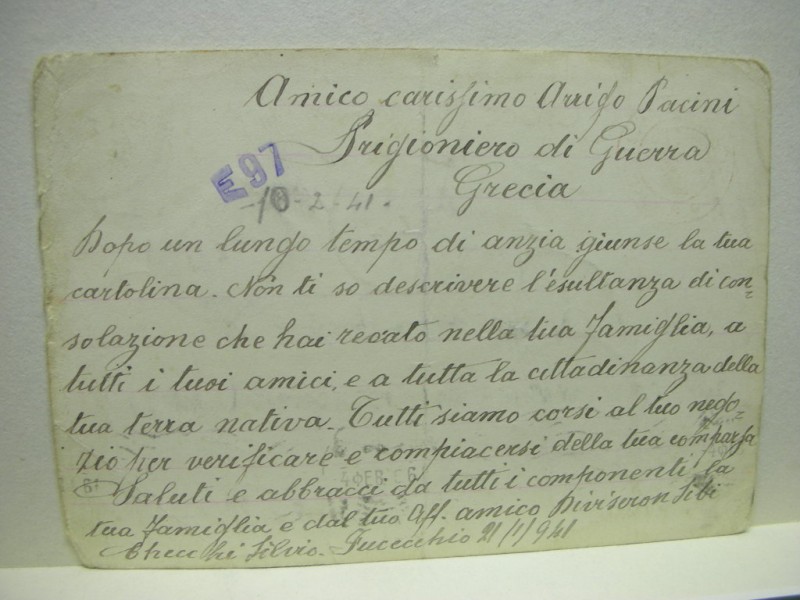 Amico carissimo Arrigo Pacini
Prigioniero di Guerra
E97
Grecia
-10-2-41.
Dopo un lungo tempo di anzia giunse la tua
cartolina. Non ti so descrivere l'esultanza di con=
solazione che hai recato nella tua famiglia, a
tutti i tuoi amici, e a tutta la cittadinanza della
tua terra nativa. Tutti siamo corsi al tuo nego=
zio per verificare e compiacersi della tua comparsa
Saluti e abbracci da tutti i componenti la
tua famiglia e dal tuo aff. amico
Checchi Silvio. Fucecchio 21/1/941